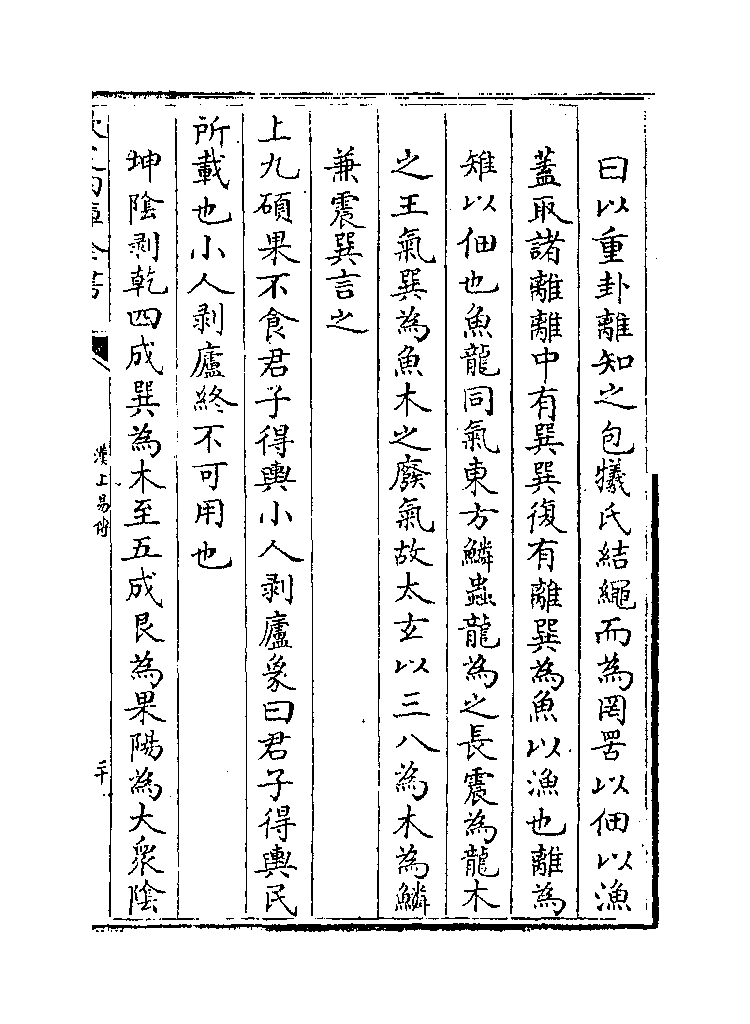 曰以重卦離知之包犧氏結繩而為罔罟以佃以漁
蓋取諸離離中有巽巽復有離巽為魚以漁也離為
雉以佃也魚龍同氣東方鱗蟲龍為之長震為龍木
之王氣巽為魚木之廢氣故太玄以三八為木為鱗
兼震巽言之
上九碩果不食君子得輿小人剥廬象曰君子得輿民
所載也小人剥廬終不可用也
坤陰剥乾四成巽為木至五成艮為果陽為大衆陰
漢上易傳
二十